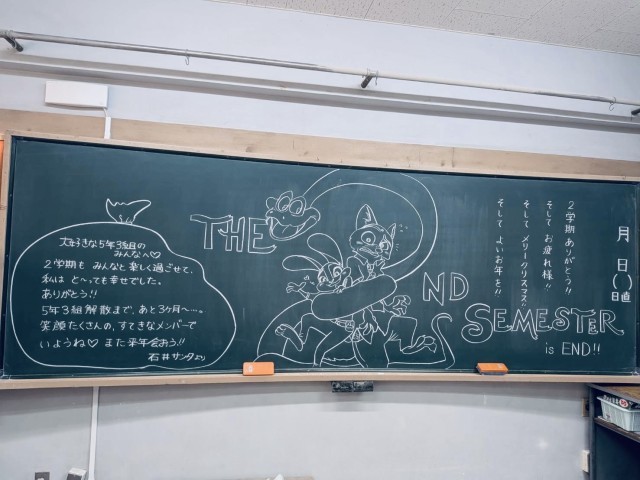 大好きな5年3組の
みんなへ♡
2学期も みんなと楽しく過ごせて、
私は と〜っても幸せでした。
ありがとう!!
5年3組解散まで、あと3ヶ月〜…。
笑顔たくさんの、すてきなメンバーで
いようね♡ また来年会おう!!
石井サンタより
THE
ND
SEMESTER
is END!!
2学期 ありがとう!!
そして お疲れ様!!
そして メリークリスマス!
そして よいお年を!!
月
日( )
日直